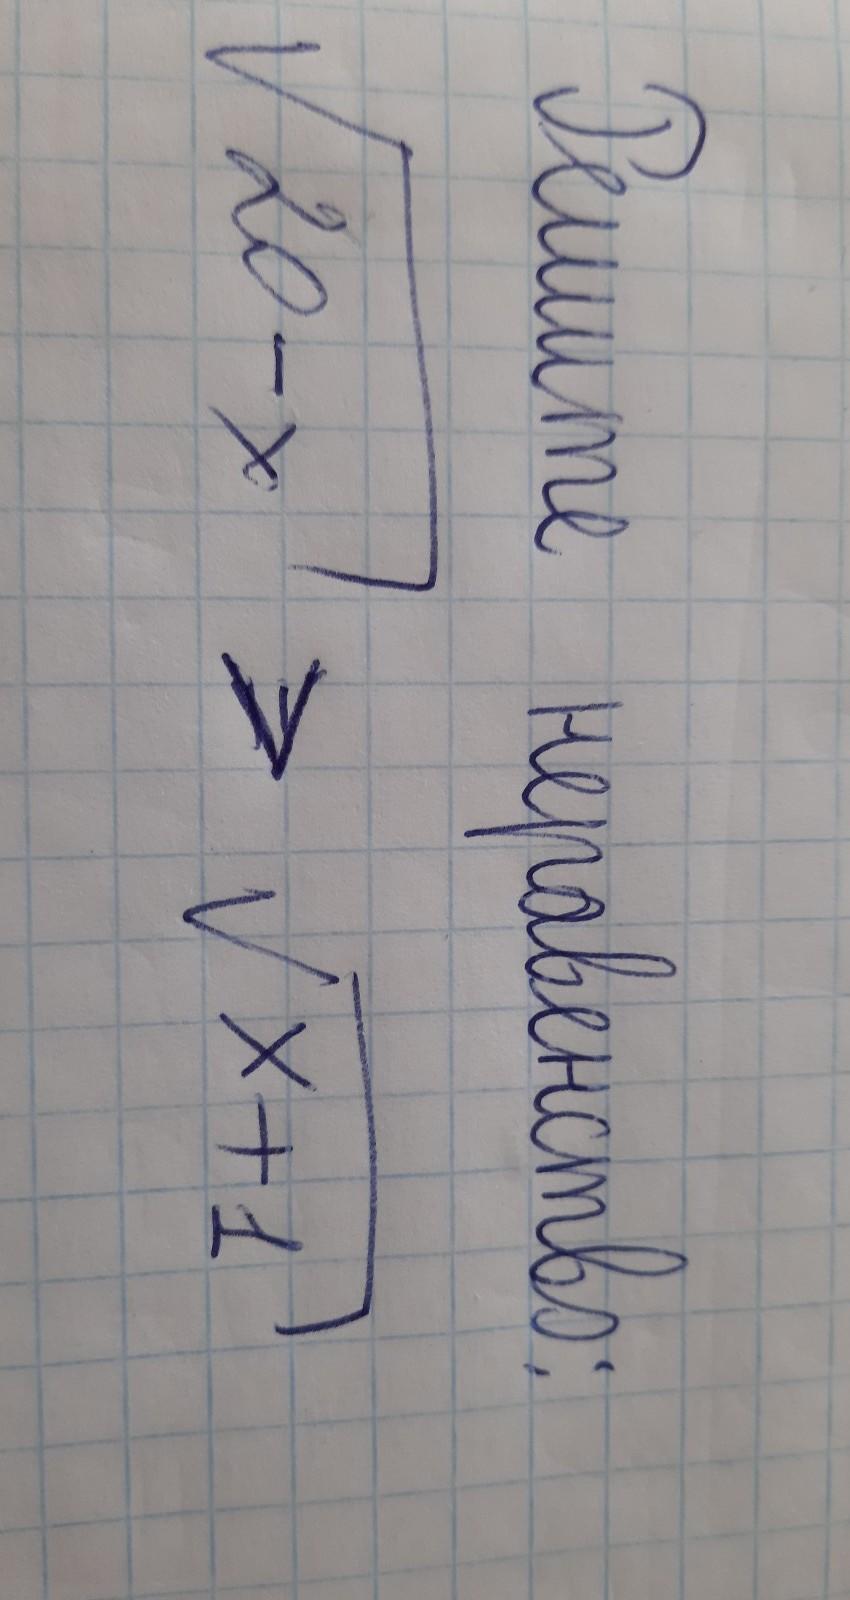 Решите неравенство:
√(20-x) > √(x+1)